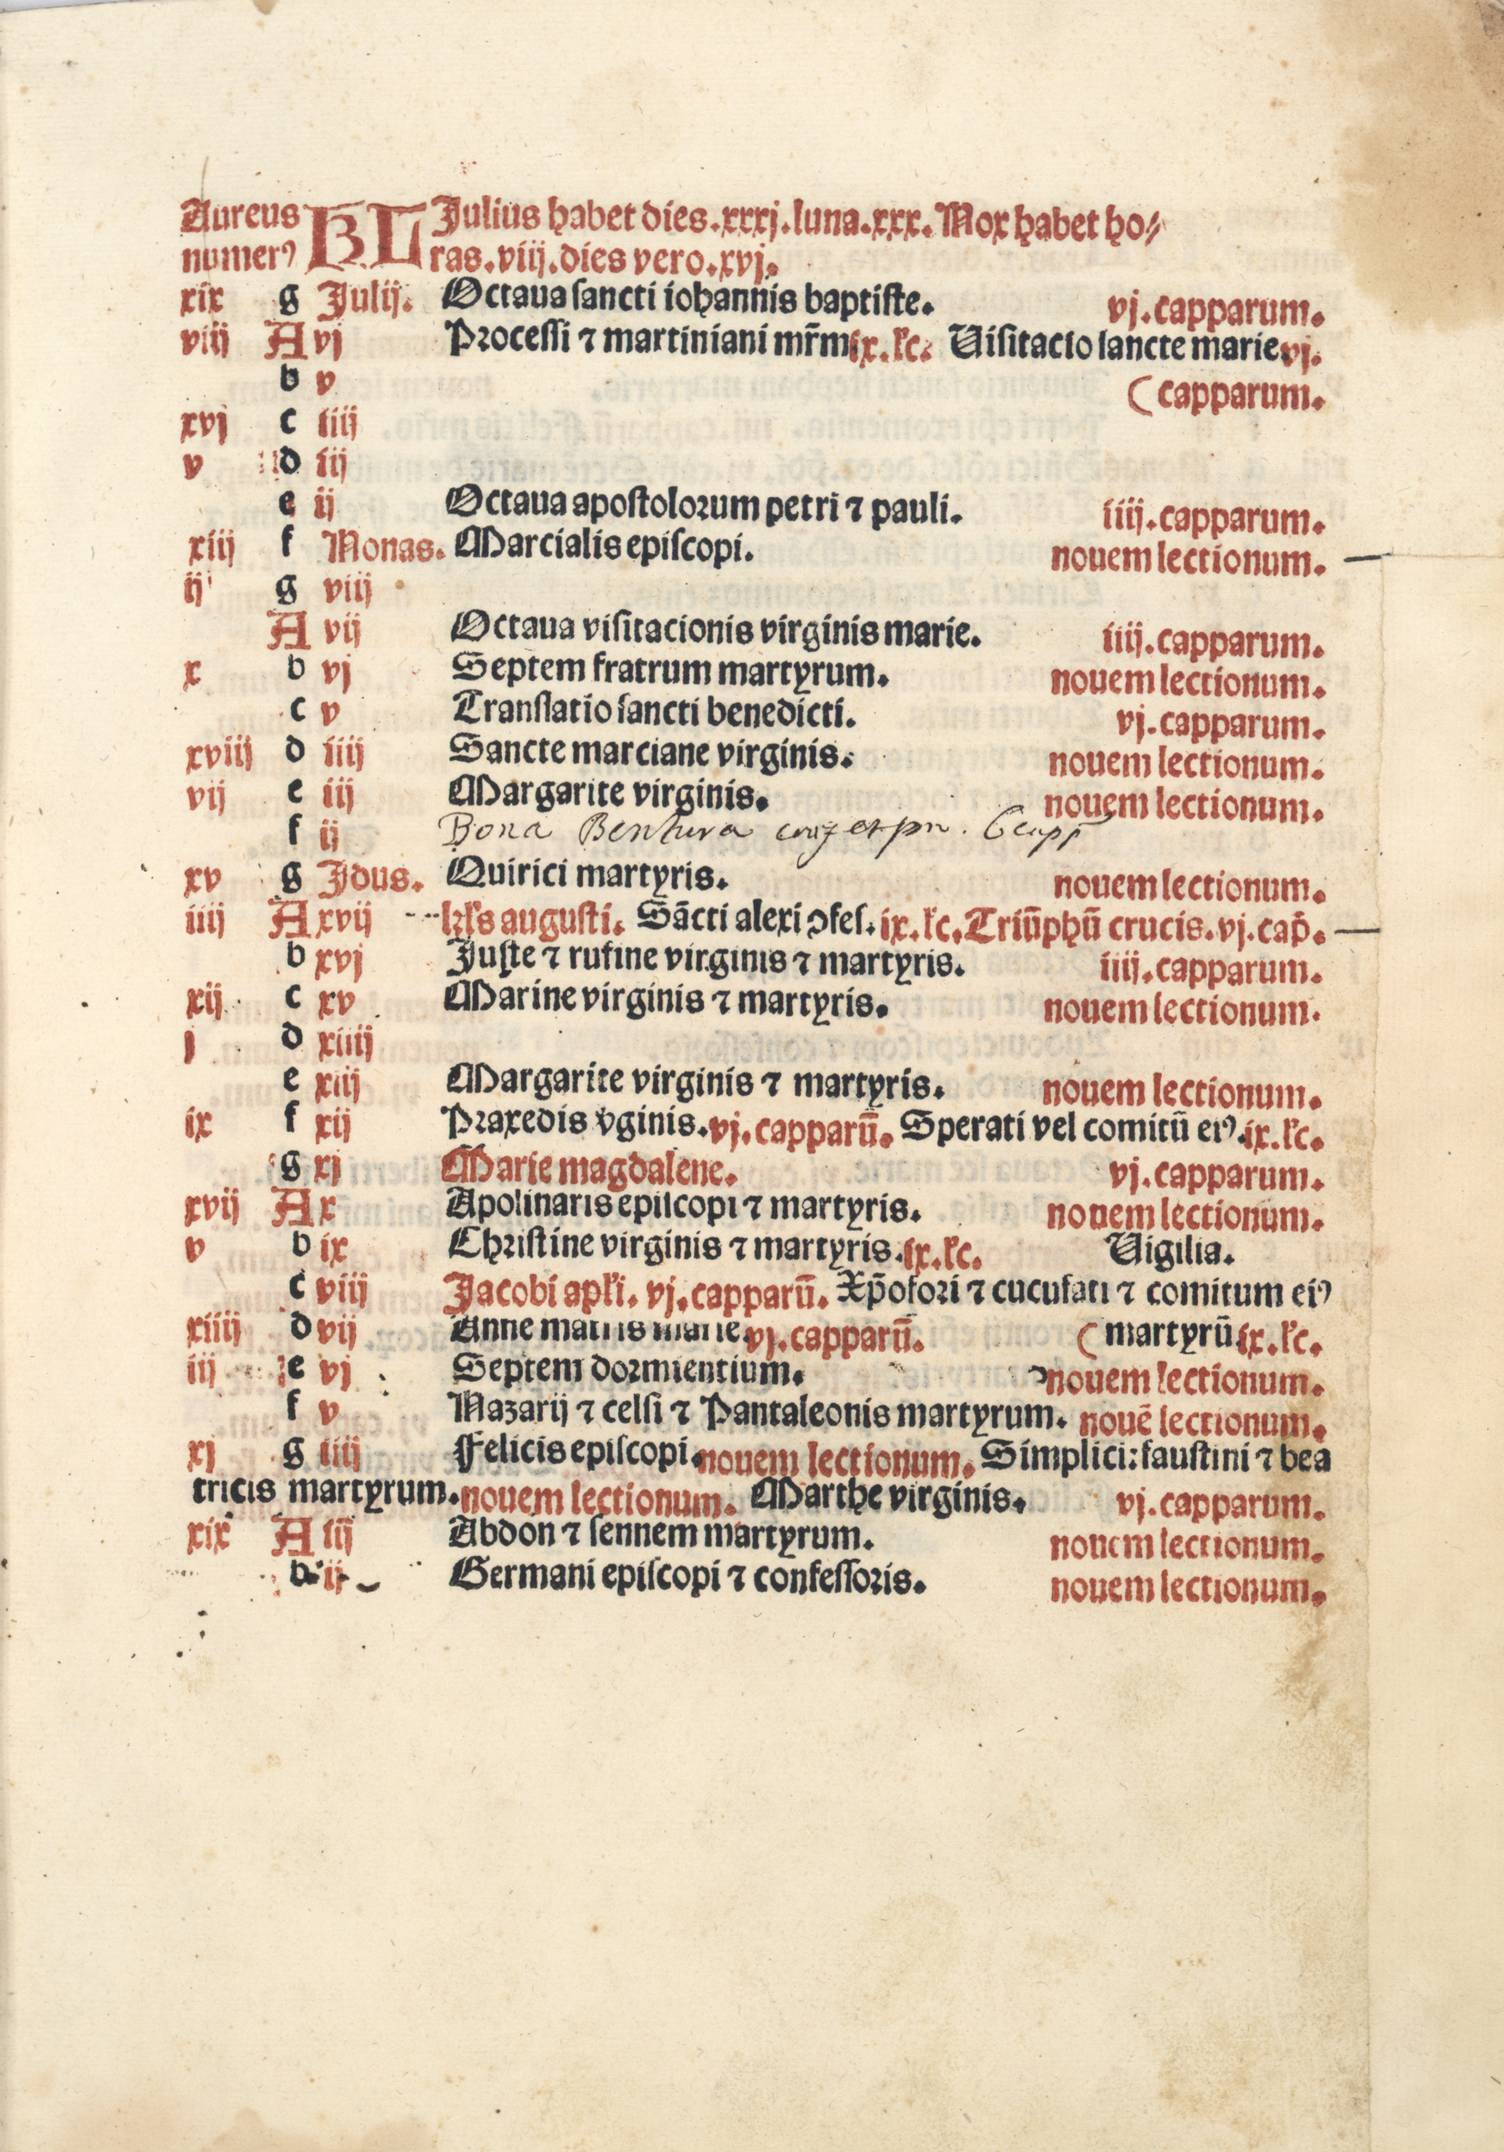 Aureus KL Julius habet dies.xxxj.luna.xxx.Nox habet ho⸗
numerꝰ ras.viij.dies vero.xvj.
xix g Julij. Octaua sancti iohannis baptiste. vj.capparum.
viij A vj Processi ⁊ martiniani mr̄m ix.lc. Uisitacio sancte marie vj.
b v (capparum.
xvj c iiij
v d iij
e ij Octaua apostolorum petri ⁊ pauli. iiij.capparum.
xiij f Nonas. Marcialis episcopi. nouem lectionum.
ij g viij
A vij Octaua visitacionis virginis marie. iiij.capparum.
x b vj Septem fratrum martyrum. nouem lectionum.
c v Translatio sancti benedicti. vj.capparum.
xviij d iiij Sancte marciane virginis. nouem lectionum.
vij e iij Margarite virginis. nouem lectionum.
f ij Bona Bentura
xv g Jdus. Quirici martyris. nouem lectionum.
iiij A xvij kl's augusti. Sācti alexi ꝯfes. ix.lc. Triūphū crucis.vj.cap̄.
b xvj Juste ⁊ rufine virginis ⁊ martyris. iiij.capparum.
xij c xv Marine virginis ⁊ martyris. nouem lectionum.
j d xiiij
e xiij Margarite virginis ⁊ martyris. nouem lectionum.
ix f xij Praxedis v̄ginis.vj.capparū. Sperati vel comitū eiꝰ.ix.lc.
g xj Marie magdalene. vj.capparum.
xvij A x Apolinaris episcopi ⁊ martyris. nouem lectionum.
v b ix Christine virginis ⁊ martyris.ix.lc. Uigilia.
c viij Jacobi apl'i. vj.capparū. Xp̄ofori ⁊ cucufati ⁊ comitum eiꝰ
xiiij d vij Anne matris marie.vj.capparū. (martyrū ix.lc.
iij e vj Septem dormientium. nouem lectionum.
f v Nazarij ⁊ celsi ⁊ Pantaleonis martyrum. nouē lectionum.
xj g iiij Felicis episcopi.nouem lectionum. Simplici: faustini ⁊ bea
tricis martyrum.nouem lectionum. Marthe virginis. vj.capparum.
xix A iij Abdon ⁊ sennem martyrum. nouem lectionum.
b ij Germani episcopi ⁊ confessoris. nouem lectionum.